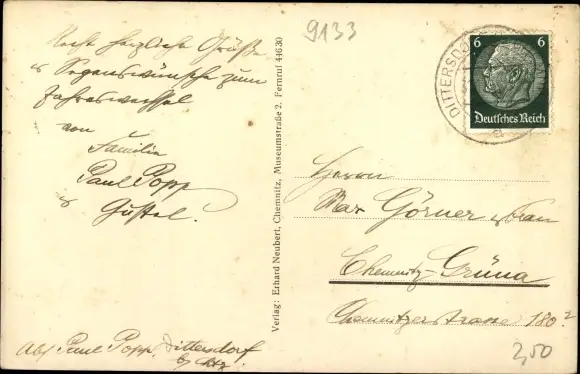 Recht herzliche Grüße
u Segenswünsche zum
Jahreswechsel
von
Familie
Paul Popp
u Gustel.
Abs. Paul Popp, Dittersdorf
b/ Chtz.
Verlag: Erhard Neubert, Chemnitz, Museumstraße 2. Fernruf 44630
9133
DITTERSDO
6 6
Deutsches Reich
Herrn
Max Görner u Frau
Chemnitz-Grüna
Chemnitzerstrasse 180²
2,50